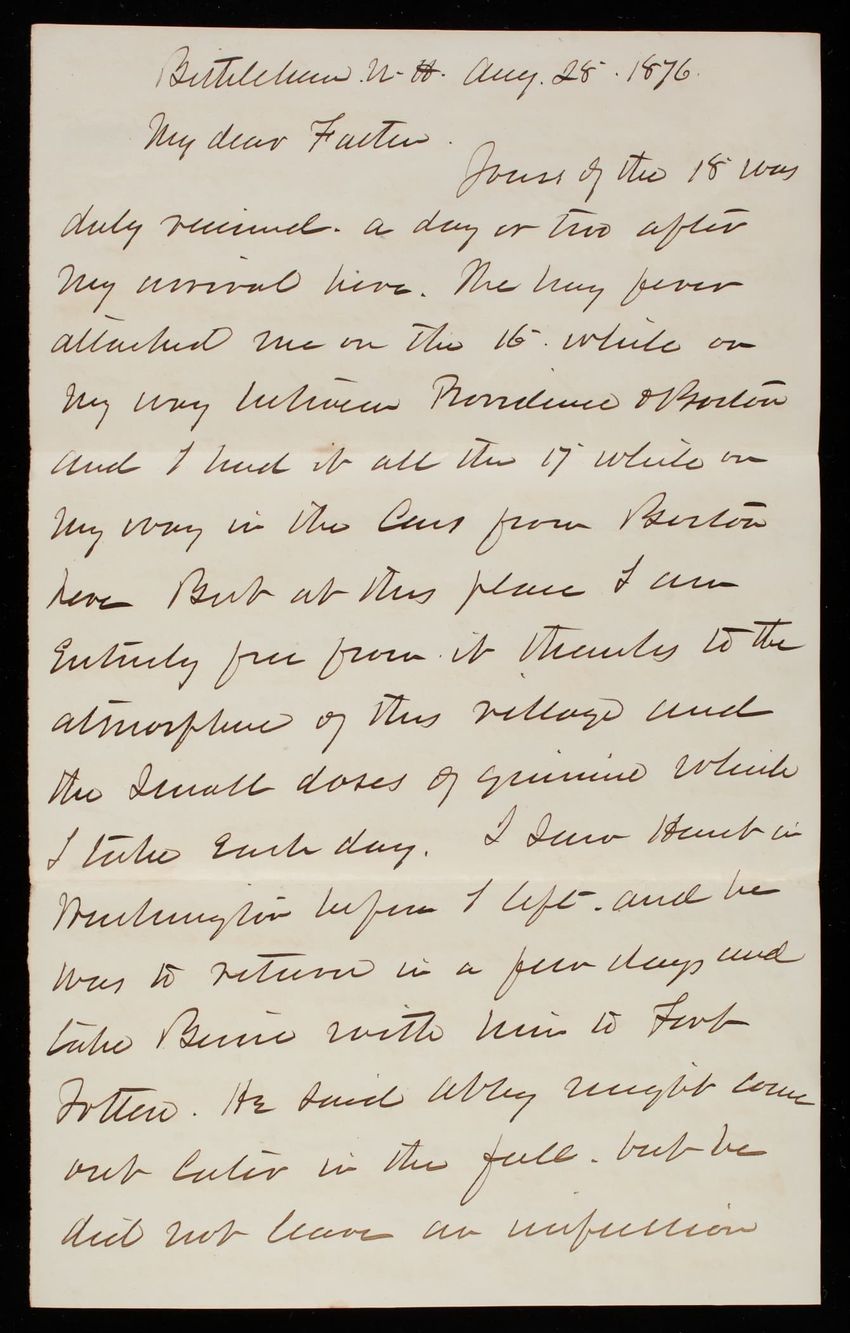 Bethlehem N. H. Aug. 28. 1876.
My dear Father.
Yours of the 18 was
duly received. a day or two after
my arrival here. The hay fever
attacked me on the 16. while on
my way between Providence & Boston
and I had it all the 17 while on
my way in the Cars from Boston
here But at this place I am
Entirely free from it thanks to the
atmosphere of this village and
the Small doses of quinine which
I take Each day. I Saw Hunt in
Washington before I left. and he
was to return in a few days and
take Bernie with him to Fort
Totten. He Said Abby might come
out later in the fall. but he
did not leave an impression